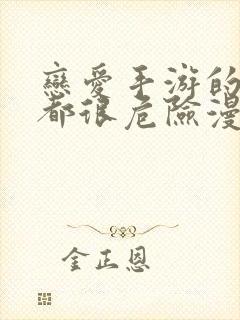 戀愛手游的
都很危險漫
金正恩